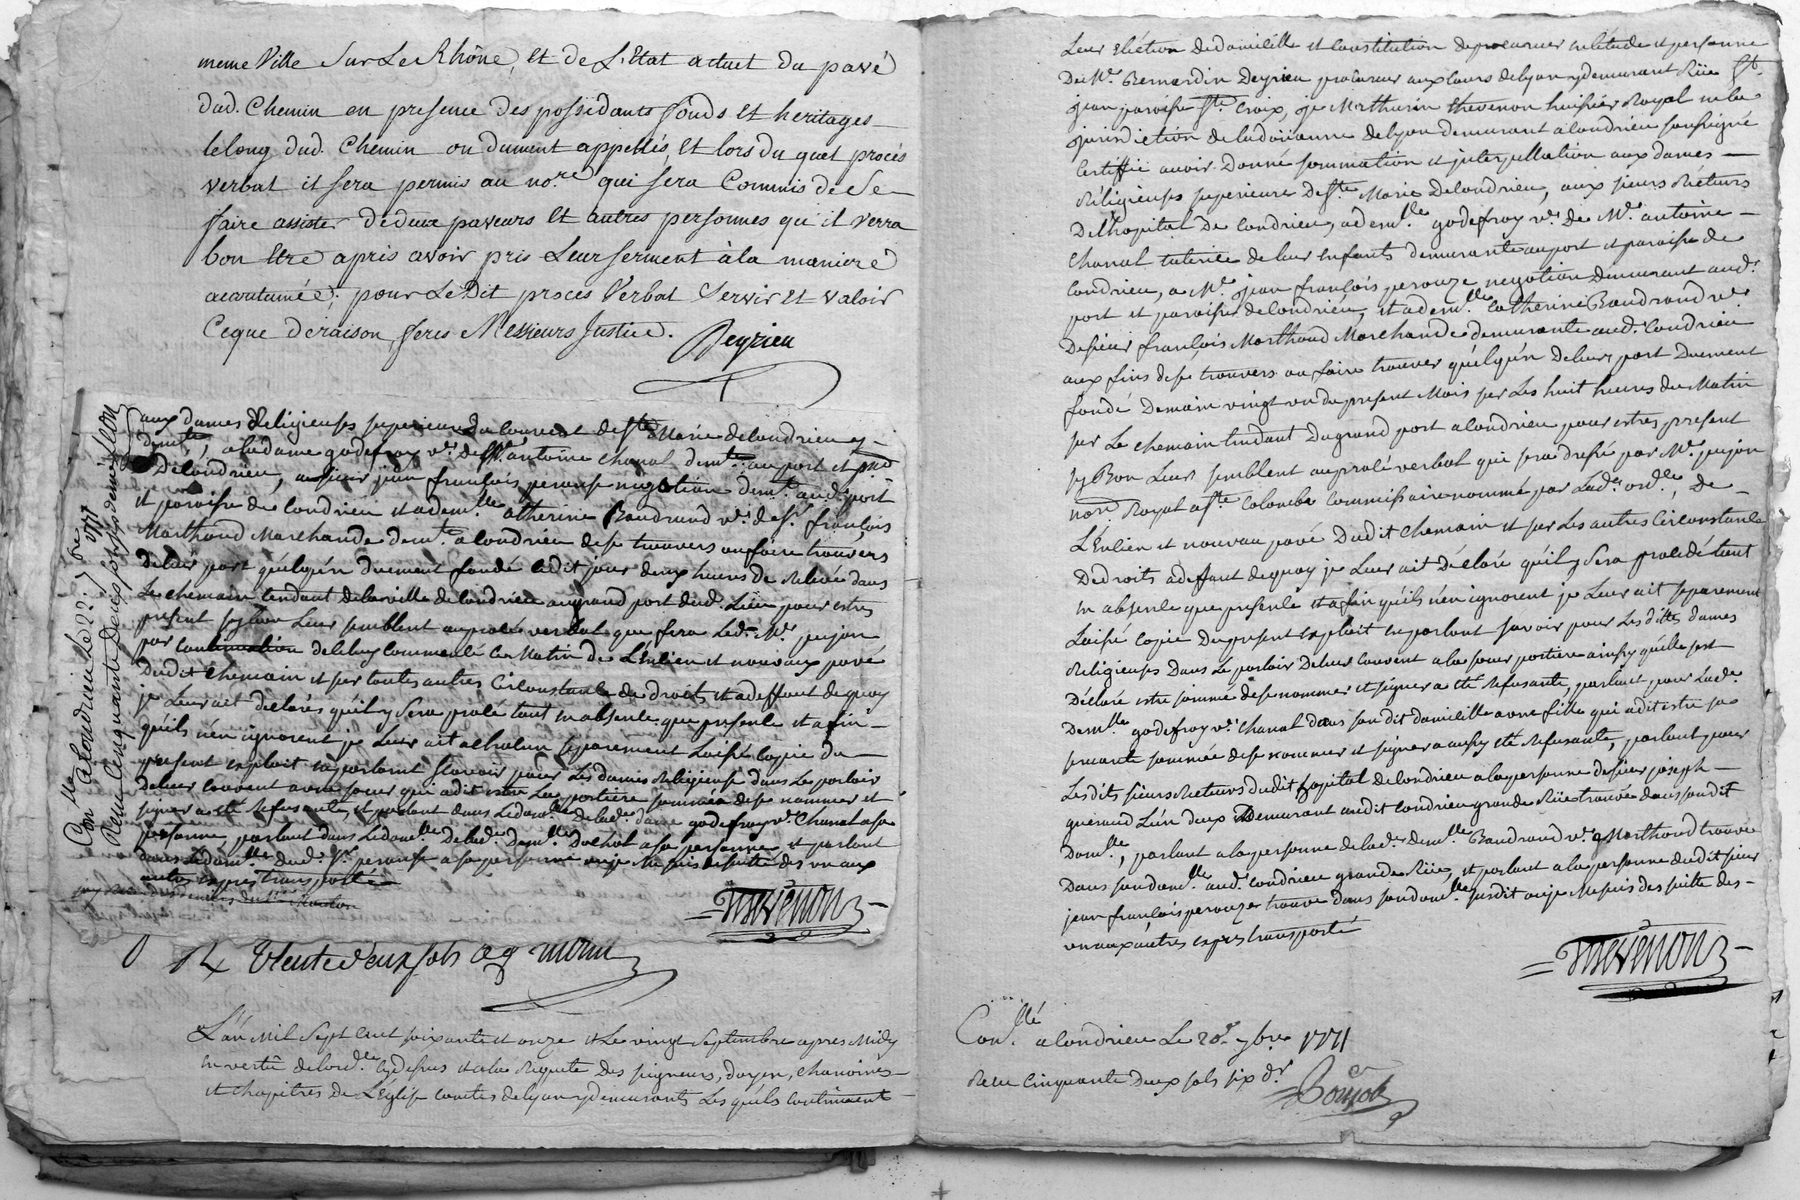 meme Ville Sur Le Rhône, Et de L'Etat actuel du pavé
dud. Chemin en presence des possédants fonds Et heritages
lelong dud. Chemin ou dument appellés, Et lors du quel procés
verbal il sera permis au no.re qui sera Commis de Se
faire assister de deux paveurs Et autres personnes qu'il verra
bon Etre aprés avoir pris Leur serment à la maniere
acoutumée; pour Le Dit procés Verbal Servir Et valoir
Ceque de raison, ferés Messieurs Justice. Deyrieu
aux dames Religieuses superieure du Couvent de Ste Marie de Condrieu y
demte, a la dame godefroy ve. de Mr. antoine Chanal demte. au port et
De Condrieu, au sieur jean françois perouse negotian demt. aud. port
et paroisse de Condrieu et a demlle. Catherine Baudrand ve. de sr. françois
Marthoud Marchande demte. a Condrieu de se trouvers ou faire trouvers
de leur port quélqún duement fondé ledit jour deux heures de Relevée dans
Le chemain tendant de la ville de Condrieu augrand port dud. Lieu pour estres
present sy bon Leur semblent au procés verbal que fera Led. Mr. pujon
par Continuation de Celuy Commencé Ce Matin de L'Enlien et nouvaux pavé
Dudit Chemain et sur toutes autres Circonstance de droits et adeffaut dequoy
je Leur ait déclarés quél y Sera procé tant en absence que presence et afin
quéils nén ignorent je Leur ait a chacun separement Laissé Copie du
present exploit en parlant sçavoir pour Les dames Religieuse dans Le parloir
de leur Couvent a une soeur qui a dit estre La portiere sommée de se nommer et
signer a été Refusante, et parlant dans Ledomlle. de lad. dame godefroy ve. Chanal a sa
personne, parlant dans Ledomlle de lad. Demlle. a sa personne et parlant
dans Ledomlle. dud. sr. perouse a sa personne ou je Me suis dessuitte des un aux
autres exprés transporté
THevenon
Con.llé a Condrieu Le 22: 7bre 1771
Reçu Cinquante Deux sols six deniers
R trente deux sols
L'an Mil Sept Cent soixante et onze et Le vingt Septembre apres Midy
en vertû de lord.ce Cy dessus et a la Requete Des seigneurs, doyen, chanoines
et chapitres de L'Eglise comtes de lyon y demeurants Les quéls Continuent
Leur Eléction de domicille et Constitution de procureur en létude et personne
De Mr. Bernardin Deyrieu procureur aux Cours de lyon y demeurant Rüe St.
jean paroisse Ste. Croix, je Mathurin thevenon huissier Royal en la
jurisdiction de ladoüanne de lyon demeurant a Condrieu soussigné
Certiffié avoir Donné sommation et jnterpellation aux dames
Réligieuses superieure de Ste. Marie de Condrieu, aux sieurs Récteurs
De Lhopital De Condrieu, a demlle godefroy ve. de Mr. antoine
Chanal tutrice de leur enfants demeurante au port et paroisse de
Condrieu, a Mr. jean françois perouze negotian demeurant aud.
port et paroisse de Condrieu, et a demlle. Catherine Baudrand ve.
De sieur françois Marthoud Marchande demeurante aud. Condrieu
aux fins de se trouvers ou faire trouver quélqún De leur port Duement
fondé Demain vingt un du present Mois sur Les huit heures du Matin
sur Le chemain tendant Du grand port a Condrieu pour estres present
sy Bon Leur semblent au procés verbal qui sera dressé par Mr. pujon
nore. Royal a Ste Colombe Commissaire nommé par Lad. ordce., De
L'Enlien et nouveau pavé Dudit Chemain et sur Les autres Circonstance
De droits adeffaut dequoy je Leur ait Déclaré quéil y Sera procedé tant
en absence que presence et afin quéils nén ignorent je Leur ait separement
Laissé Copie Du present exploit en parlant savoir pour Lesdittes dames
Religieuses Dans Le parloir De leur Couvent a la soeur portiere ainsy quélle sest
Déclaré estre sommée de se nommer et signer a été Refusante, parlant pour Lade
Demlle. godefroy ve. Chanal dans son dit domicille a une fille qui a dit estre sa
servante sommée de se nommer et signer a aussy été Refusante, parlant pour
Lesdits sieurs Récteurs Dudit hopital de Condrieu a la personne de sieur joseph
guenaud Lún deux Demeurant audit Condrieu grande Rüe trouvée dans sondit
Domlle, parlant a la personne de lad. demlle. Baudrand ve. Marthoud trouvée
Dans son domlle. aud. Condrieu grande Rüe, et parlant a la personne dudit sieur
jean françois perouze trouvé dans son domlle. susdit ou je Me suis dessuitte des
un aux autres exprés transporté
THevenon
Con.llé a Condrieu Le 20e. 7bre 1771
Reçu Cinquante Deux sols six drs